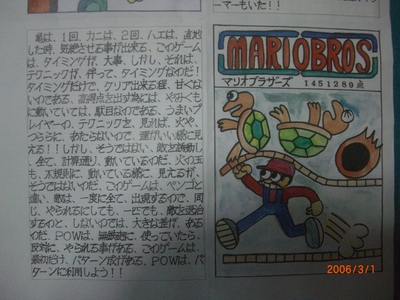 ーマーもいた!!
亀は、1回、カニは、2回、ハエは、着地
した時、気絶させる事が出来る。このゲーム
は、タイミングが、大事。しかし、それは、
テクニックが、伴って、タイミングなのだ!
タイミングだけで、クリア出来る程、甘くな
いのである。高得点を出す為には、やみくも
に動いていては、駄目なのである。うまいプ
レイヤーの、テクニックを、見れば、火や
つららに、あたらないので、運がいい様に見
える!!しかし、そうではない。敵を誘動し
、全て、計算通り、動いているのだ。火の玉
も、不規則に、動いている様に、見えるが、
そうではないのだ。このゲームは、ペンゴと
違い、敵は、一度に全て、出現するので、同
じ、やられるにしても、一匹でも、敵を退治
するのと、しないのでは、大きな差が、ある
のだ。POWは、無鉄砲に、使っていたら、
反対に、やられる事がある。このゲームは、
最初だけ、パターン成がある。POWは、パ
ターンに利用しよう!!
MARIOBROS
マリオブラザーズ 1451280点
2006/3/1